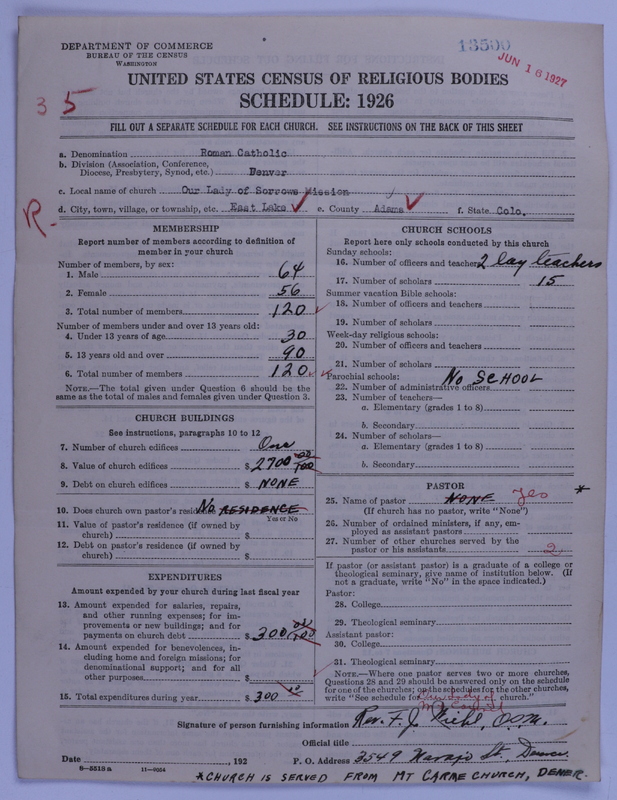 DEPARTMENT OF COMMERCE
BUREAU OF THE CENSUS
WASHINGTON
13500
JUN 16 1927
UNITED STATES CENSUS OF RELIGIOUS BODIES
SCHEDULE: 1926
3 5
FILL OUT A SEPARATE SCHEDULE FOR EACH CHURCH. SEE INSTRUCTIONS ON THE BACK OF THIS SHEET
a. Denomination Roman Catholic
b. Division (Association, Conference, Diocese, Presbytery, Synod, etc.) Denver
c. Local name of church Our Lady of Sorrows Mission
d. City, town, village, or township, etc. East Lake e. County Adams f. State Colo.
R.
MEMBERSHIP
Report number of members according to definition of
member in your church
Number of members, by sex:
1. Male 64
2. Female 56
3. Total number of members 120
Number of members under and over 13 years old:
4. Under 13 years of age 30
5. 13 years old and over 90
6. Total number of members 120
NOTE.—The total given under Question 6 should be
same as the total of males and females given under Question 3.
CHURCH BUILDINGS
See instructions, paragraphs 10 to 12
7. Number of church edifices One
8. Value of church edifices $ 2700 00/100
9. Debt on church edifices $ NONE
10. Does church own pastor's residence No RESIDENCE
Yes or No
11. Value of pastor's residence (if owned by
church) $
12. Debt on pastor's residence (if owned by
church) $
EXPENDITURES
Amount expended by your church during last fiscal year
13. Amount expended for salaries, repairs,
and other running expenses; for im-
provements or new buildings; and for
payments on church debt $ 300 00/100
14. Amount expended for benevolences, in-
cluding home and foreign missions; for
denominational support; and for all
other purposes $
15. Total expenditures during year $ 300
CHURCH SCHOOLS
Report here only schools conducted by this church
Sunday schools:
16. Number of officers and teachers 2 lay teachers
17. Number of scholars 15
Summer vacation Bible schools:
18. Number of officers and teachers
19. Number of scholars
Week-day religious schools:
20. Number of officers and teachers
21. Number of scholars
Parochial schools: No SCHOOL
22. Number of administrative officers
23. Number of teachers—
a. Elementary (grades 1 to 8)
b. Secondary
24. Number of scholars—
a. Elementary (grades 1 to 8)
b. Secondary
PASTOR
25. Name of pastor NONE Yes *
(If church has no pastor, write "None")
26. Number of ordained ministers, if any, em-
ployed as assistant pastors
27. Number of other churches served by the
pastor or his assistants 2
If pastor (or assistant pastor) is a graduate of a college or
theological seminary, give name of institution below. (If
not a graduate, write "No" in the space indicated.)
Pastor:
28. College
29. Theological seminary
Assistant pastor:
30. College
31. Theological seminary
NOTE.—Where one pastor serves two or more churches,
Questions 28 and 29 should be answered only on the schedule
for one of the churches; on the schedules for the other churches,
write "See schedule for church."
Signature of person furnishing information Rev. F. J. O.S.M.
Official title
Date , 192 P. O. Address 3549 Navajo St, Denver.
8—5518a 11—9054
*CHURCH IS SERVED FROM MT CARME CHURCH, DENER.